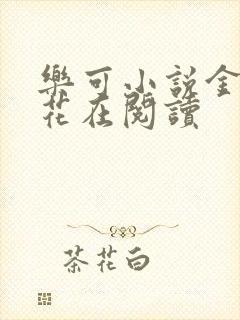 樂可小說金
花在閱讀
茶花白